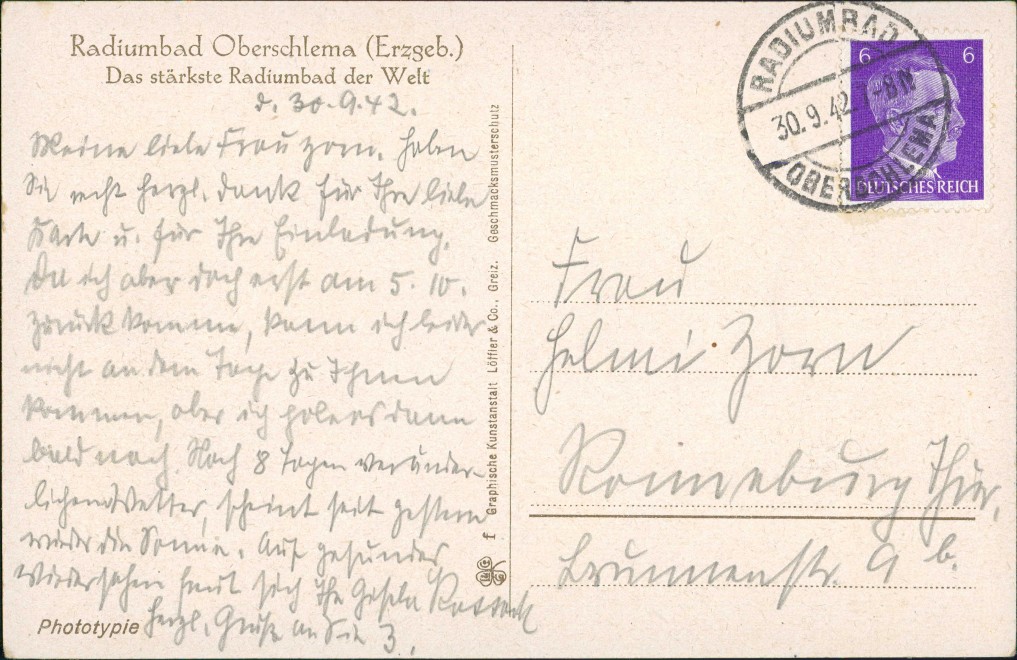 Radiumbad Oberschlema (Erzgeb.)
Das stärkste Radiumbad der Welt
d. 30.9.42.
Meine liebe Frau Zorn. Haben
Sie recht herzl. Dank für Ihre liebe
Karte u. für Ihre Einladung.
Da ich aber doch erst am 5. 10.
zurück komme, kann ich leider
nicht an dem Tage zu Ihnen
kommen, aber ich hole es dann
bald nach. Nach 8 Tagen veränder-
lichem Wetter, scheint seit gestern
wieder die Sonne. Auf gesundes
Wiedersehen freut sich Ihre Gisela
Herzl. Grüße an Sie 3,
Phototypie
f Graphische Kunstanstalt Löffler & Co., Greiz. Geschmacksmusterschutz
RADIUMBAD
30.9.42 -8N
OBERSCHLEMA
6 6
DEUTSCHES REICH
Frau
Helmi Zorn
Ronneburg Thür.
Brunnenstr. 9 b.